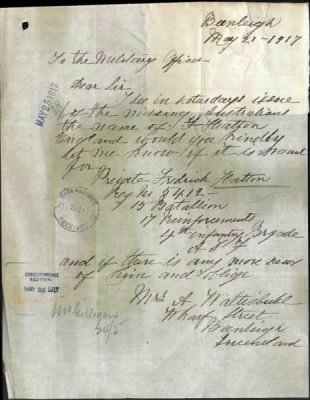 Beenleigh
May 21-1917
To the Military Officer
Dear Sir
I see in saturdays issue
of the missing Australians
the name of F Hatton
England would you kindly
let me know if it is meant
for
Private Fredrick Hatton
Reg No 5412
15 Batallion
17 Reinforcements
4th infantry Brgade
A I F
and if there is any more news
of him and oblige
Mrs A Wattisbull
Wharf Street
Beenleigh
Queensland
MAY 25 1917
RECEIVED
CORRESPONDENCE
SECTION
MAY 26 1917